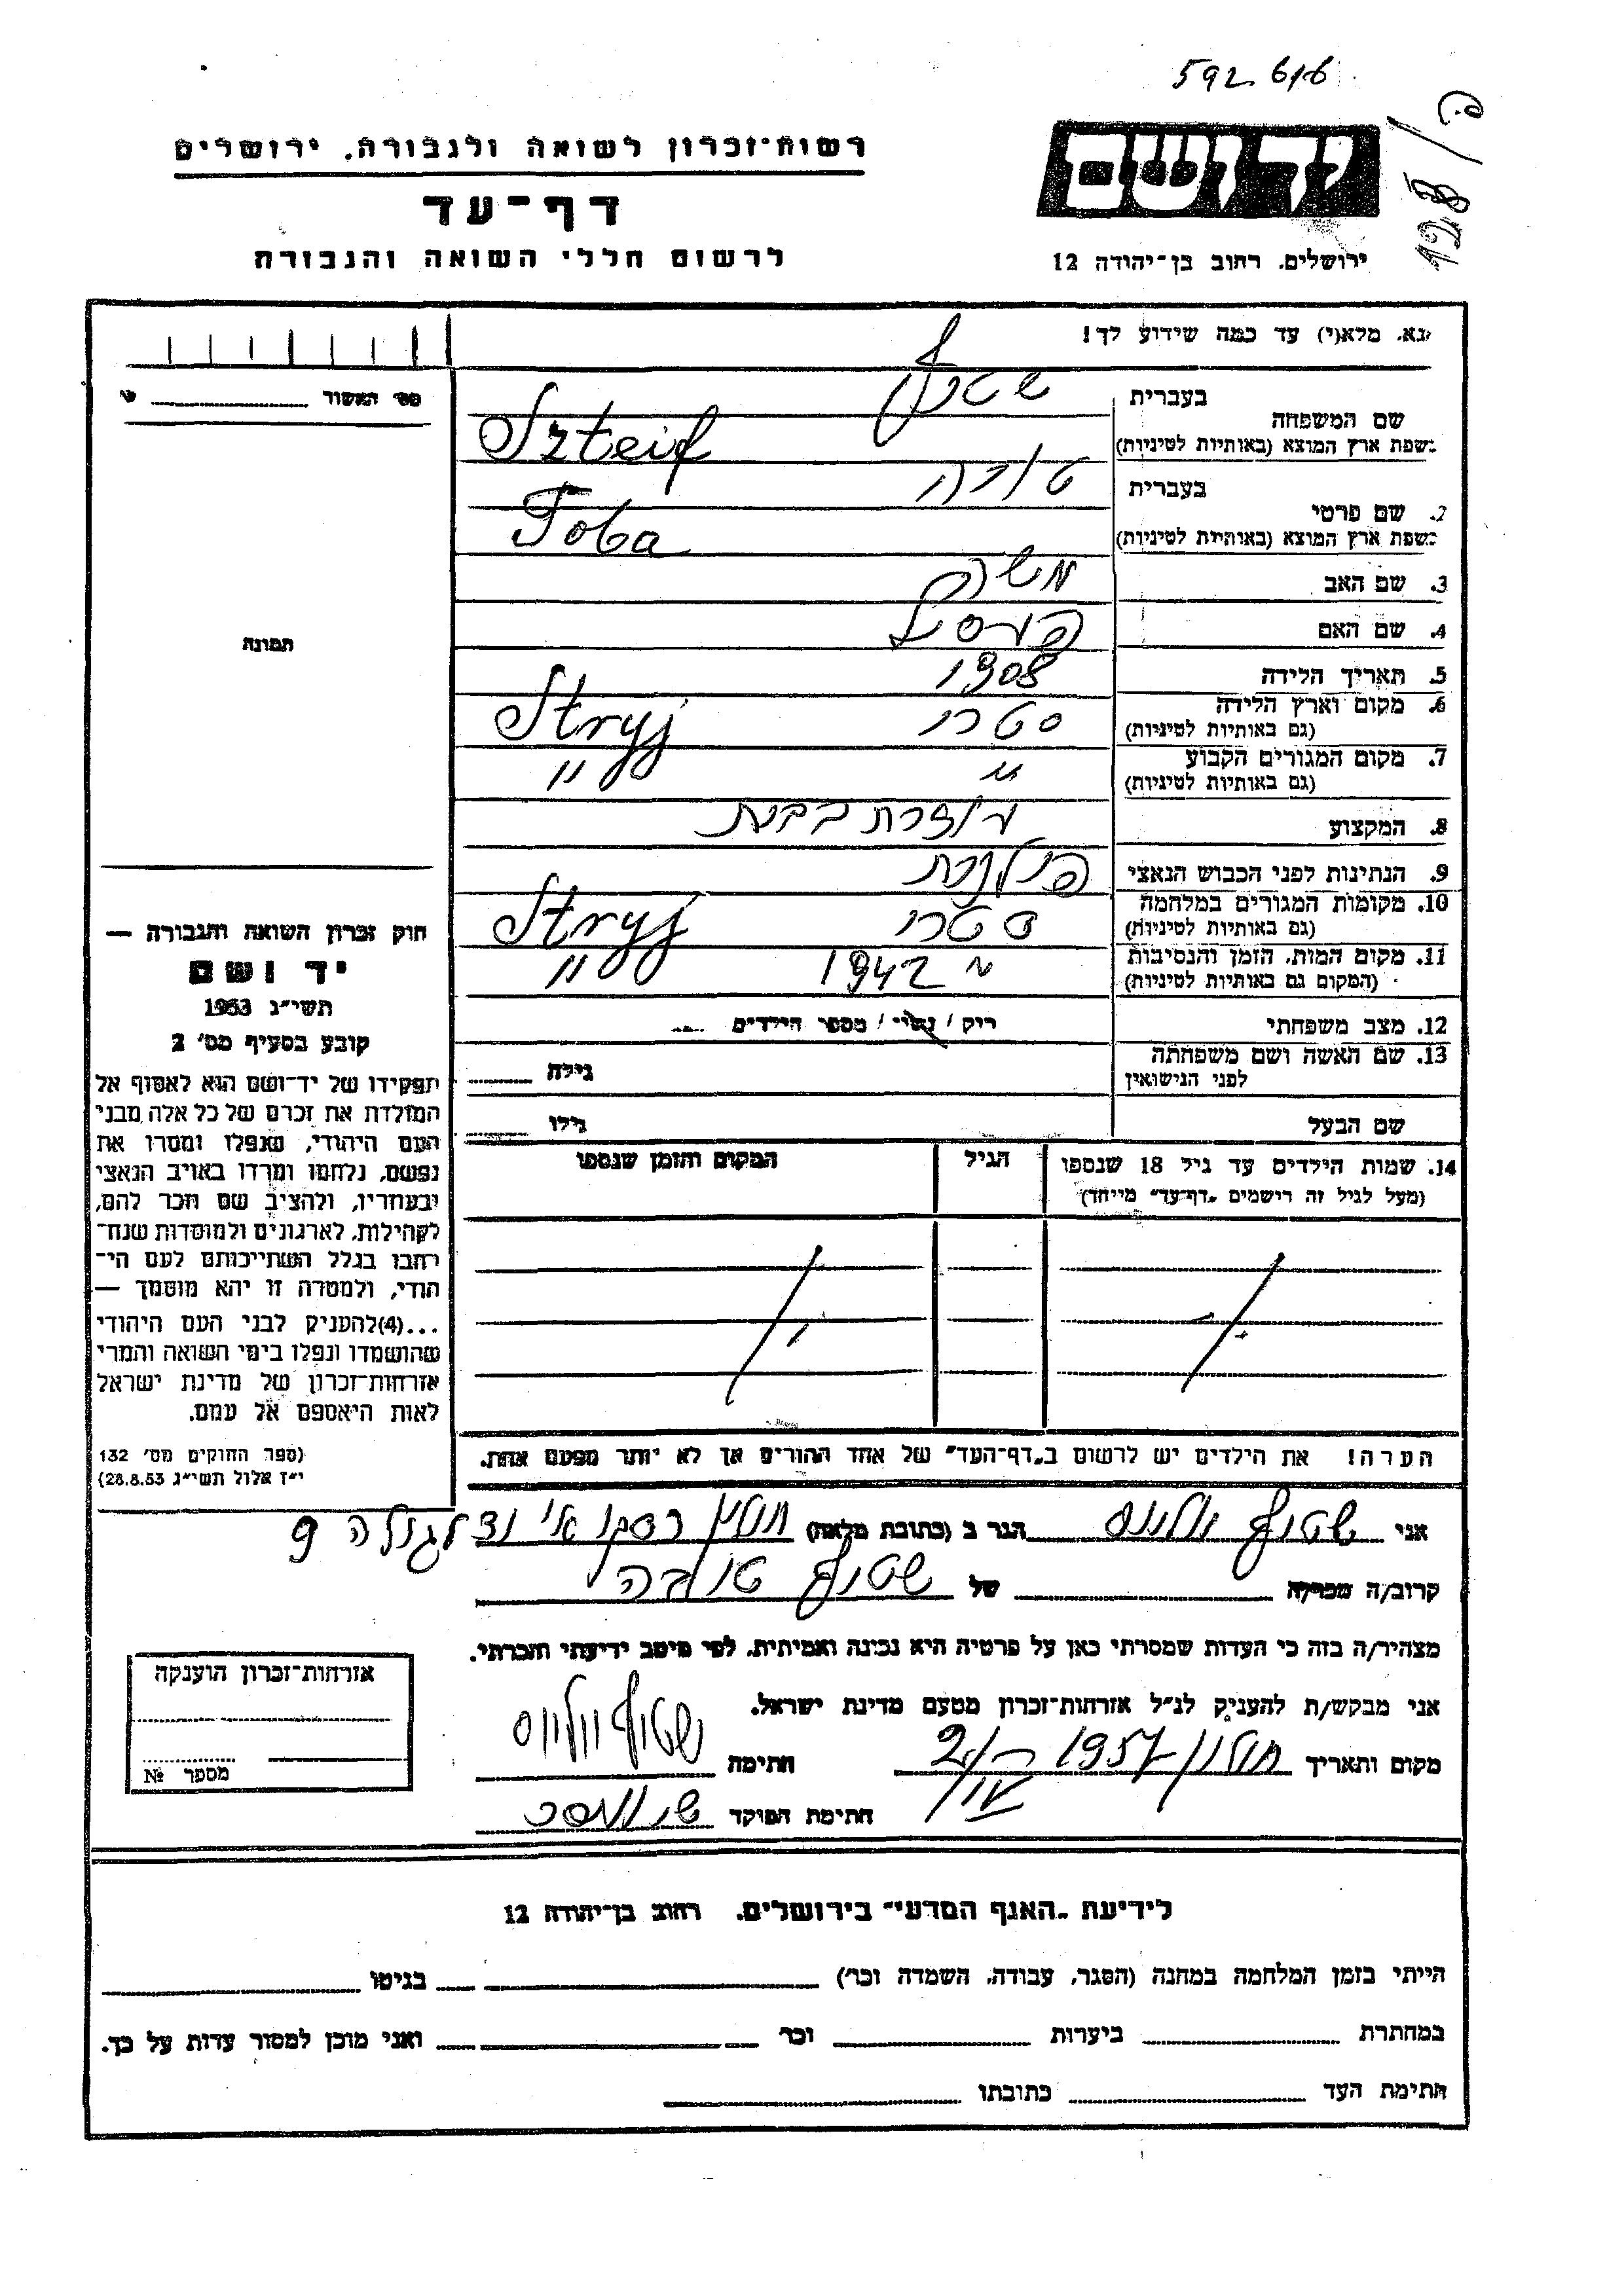 592616
128/פ
יד ושם
רשות-זכרון לשואה ולגבורה. ירושלים
דף-עד
לרשום חללי השואה והגבורה
ירושלים. רחוב בן-יהודה 12
נא. מלא(י) עד כמה שידוע לך!
מס׳ האשור
שם המשפחה
בעברית
שטיף
בשפת ארץ המוצא (באותיות לטיניות)
Szteif
2. שם פרטי
בעברית
טובה
בשפת ארץ המוצא (באותיות לטיניות)
Toba
3. שם האב משה
4. שם האם
5. תאריך הלידה 1908
6. מקום וארץ הלידה סטרי Stryj
(גם באותיות לטיניות)
7. מקום המגורים הקבוע " "
(גם באותיות לטיניות)
8. המקצוע עוזרת בבית
9. הנתינות לפני הכבוש הנאצי פולנית
10. מקומות המגורים במלחמה סטרי Stryj
(גם באותיות לטיניות)
11. מקום המות. הזמן והנסיבות " 1942 "
(המקום גם באותיות לטיניות)
12. מצב משפחתי רוק / נשוי / מספר הילדים
13. שם האשה ושם משפחתה
לפני הנישואין
גילה
שם הבעל גילו
14. שמות הילדים עד גיל 18 שנספו
(מעל לגיל זה רישמים „דף-עד" מייחד)
הגיל
המקום והזמן שנספו
הערה! את הילדים יש לרשום ב„דף-העד" של אחד ההורים אך לא יותר מפעם אחת.
תמונה
חוק זכרון השואה והגבורה —
יד ושם
תשי״ג 1953
קובע בסעיף מס׳ 2
תפקידו של יד-ושם הוא לאסוף אל
המולדת את זכרם של כל אלה מבני
העם היהודי, שנפלו ומסרו את
נפשם, נלחמו ומרדו באויב הנאצי
ובעוזריו, ולהציב שם וזכר להם,
לקהילות, לארגונים ולמוסדות שנח-
רבו בגלל השתייכותם לעם הי-
הודי, ולמטרה זו יהא מוסמך —
...(4)להעניק לבני העם היהודי
שהושמדו ונפלו בימי השואה והמרי
אזרחות-זכרון של מדינת ישראל
לאות היאספם אל עמם.
(ספר החוקים מס׳ 132
י״ז אלול תשי״ג 28.8.53)
אני שטיף הגר ב (כתובת מלאה) חולון
קרוב/ה מכר/ה של שטיף טובה
מצהיר/ה בזה כי העדות שמסרתי כאן על פרטיה היא נכונה ואמיתית, לפי מיטב ידיעתי והכרתי.
אני מבקש/ת להעניק לנ״ל אזרחות-זכרון מטעם מדינת ישראל.
מקום ותאריך חולון 1957 חתימה שטיף
חתימת הפוקד
אזרחות-זכרון הוענקה
מספר №
לידיעת „האגף המדעי" בירושלים. רחוב בן-יהודה 12
הייתי בזמן המלחמה במחנה (הסגר, עבודה, השמדה וכו׳) בגיטו
במחתרת ביערות וכו׳ ואני מוכן למסור עדות על כך.
חתימת העד כתובתו